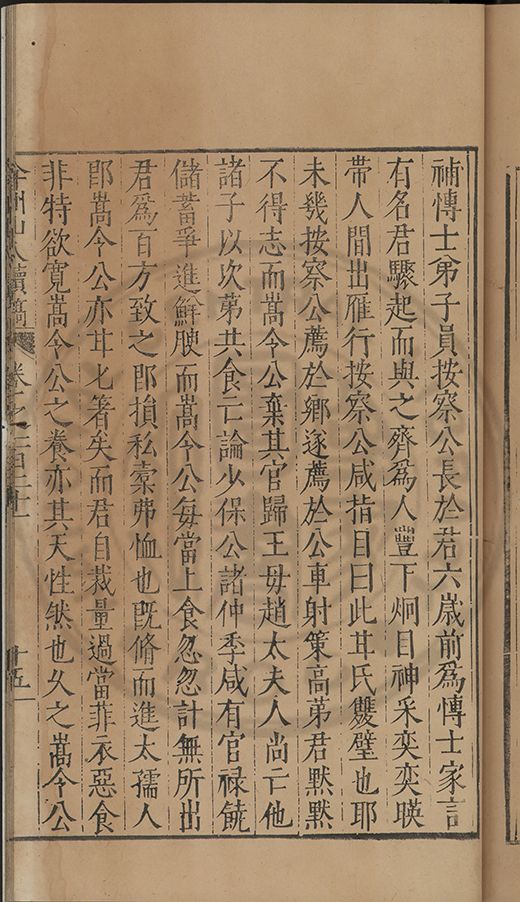 補博士弟子員按察公長於君六歲前爲博士家言
有名君驟起而與之齊爲人豐下炯目神采奕奕暎
帶人間出雁行按察公咸指目曰此耳氏雙璧也耶
未幾按察公薦於鄉遂薦於公車射策高第君默默
不得志而嵩令公棄其官歸王毋趙太夫人尚亡他
諸子以次第共食亡論少保公諸仲季咸有官祿饒
儲蓄爭進鮮腴而嵩令公每當上食忽忽計無所出
君爲百方致之即損私橐弗恤也既脩而進太孺人
即嵩令公亦耳匕箸矣而君自裁量過當菲衣惡食
非特欲寬嵩令公之養亦其天性然也久之嵩令公
弇州山人續稿 卷之一百二十 十五